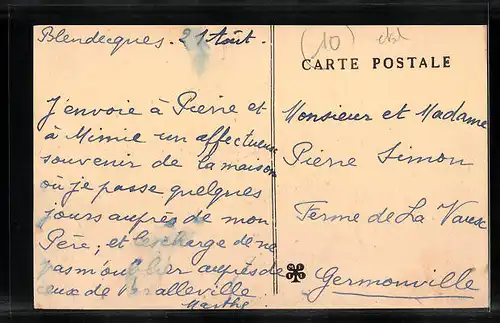 Blendecques. 21 Août.
J'envoie à Pierre et
à Mimie un affectueux
souvenir de la maison
où je passe quelques
jours auprès de mon
Père, et les charge de ne
pas m'oublier auprès de
ceux de Bralleville
Marthe
(10)
CARTE POSTALE
Monsieur et Madame
Pierre Simon
Ferme de La Vaux
Germonville